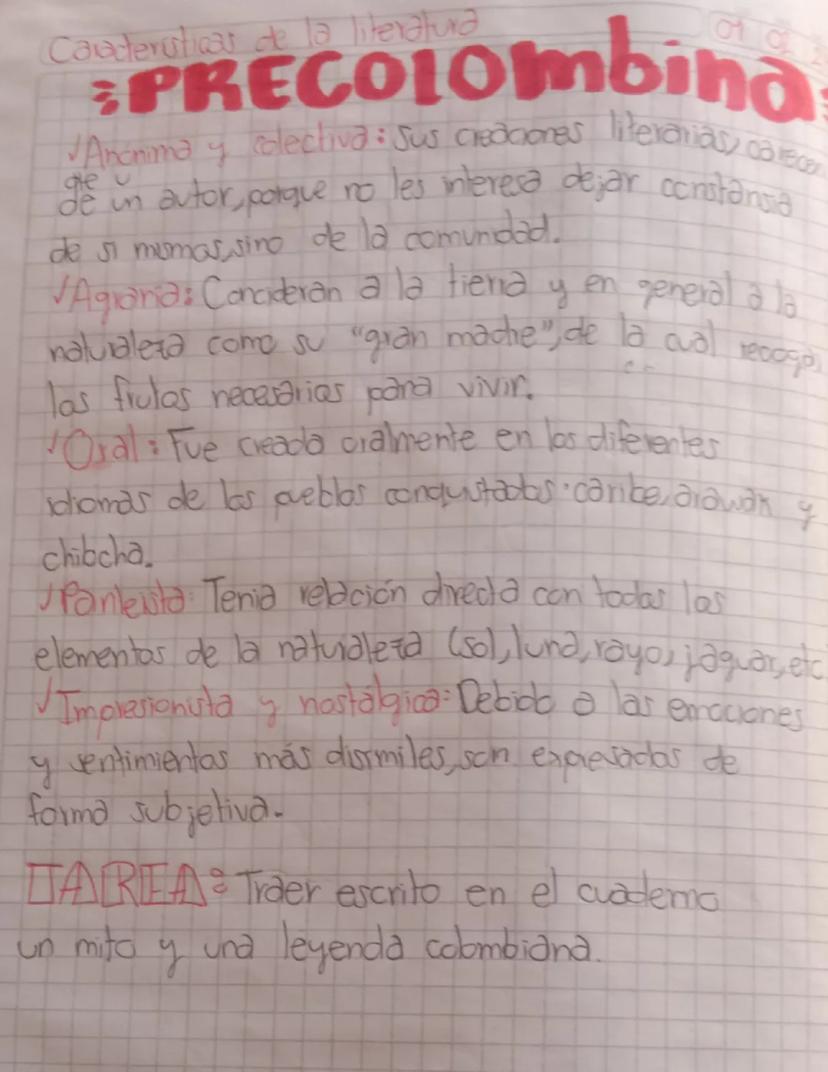 Características de la literatura
PRECOLOMbina
√Anónima y colectiva: Sus creaciones literarias, carecen
de un autor, porque no les interesa dejar constansia
de si mismas, sino de la comunidad.
√Agraria: Concideran a la tierra y en general a la
naturaleza como su "gran madre", de la cual recogen
los frutos necesarios para vivir.
√Oral: Fue creada oralmente en los diferentes
idiomas de los pueblos conquistados: caribe, arawak y
chibcha.
√Panteista: Tenia relación directa con todos los
elementos de la naturaleza (sol, luna, rayo, jaguar, etc
√Impresionista y nostálgica: Debido a las emociones
y sentimientos más disimiles, son expresados de
forma subjetiva.
TAREA: Traer escrito en el cuaderno
un mito y una leyenda colombiana.